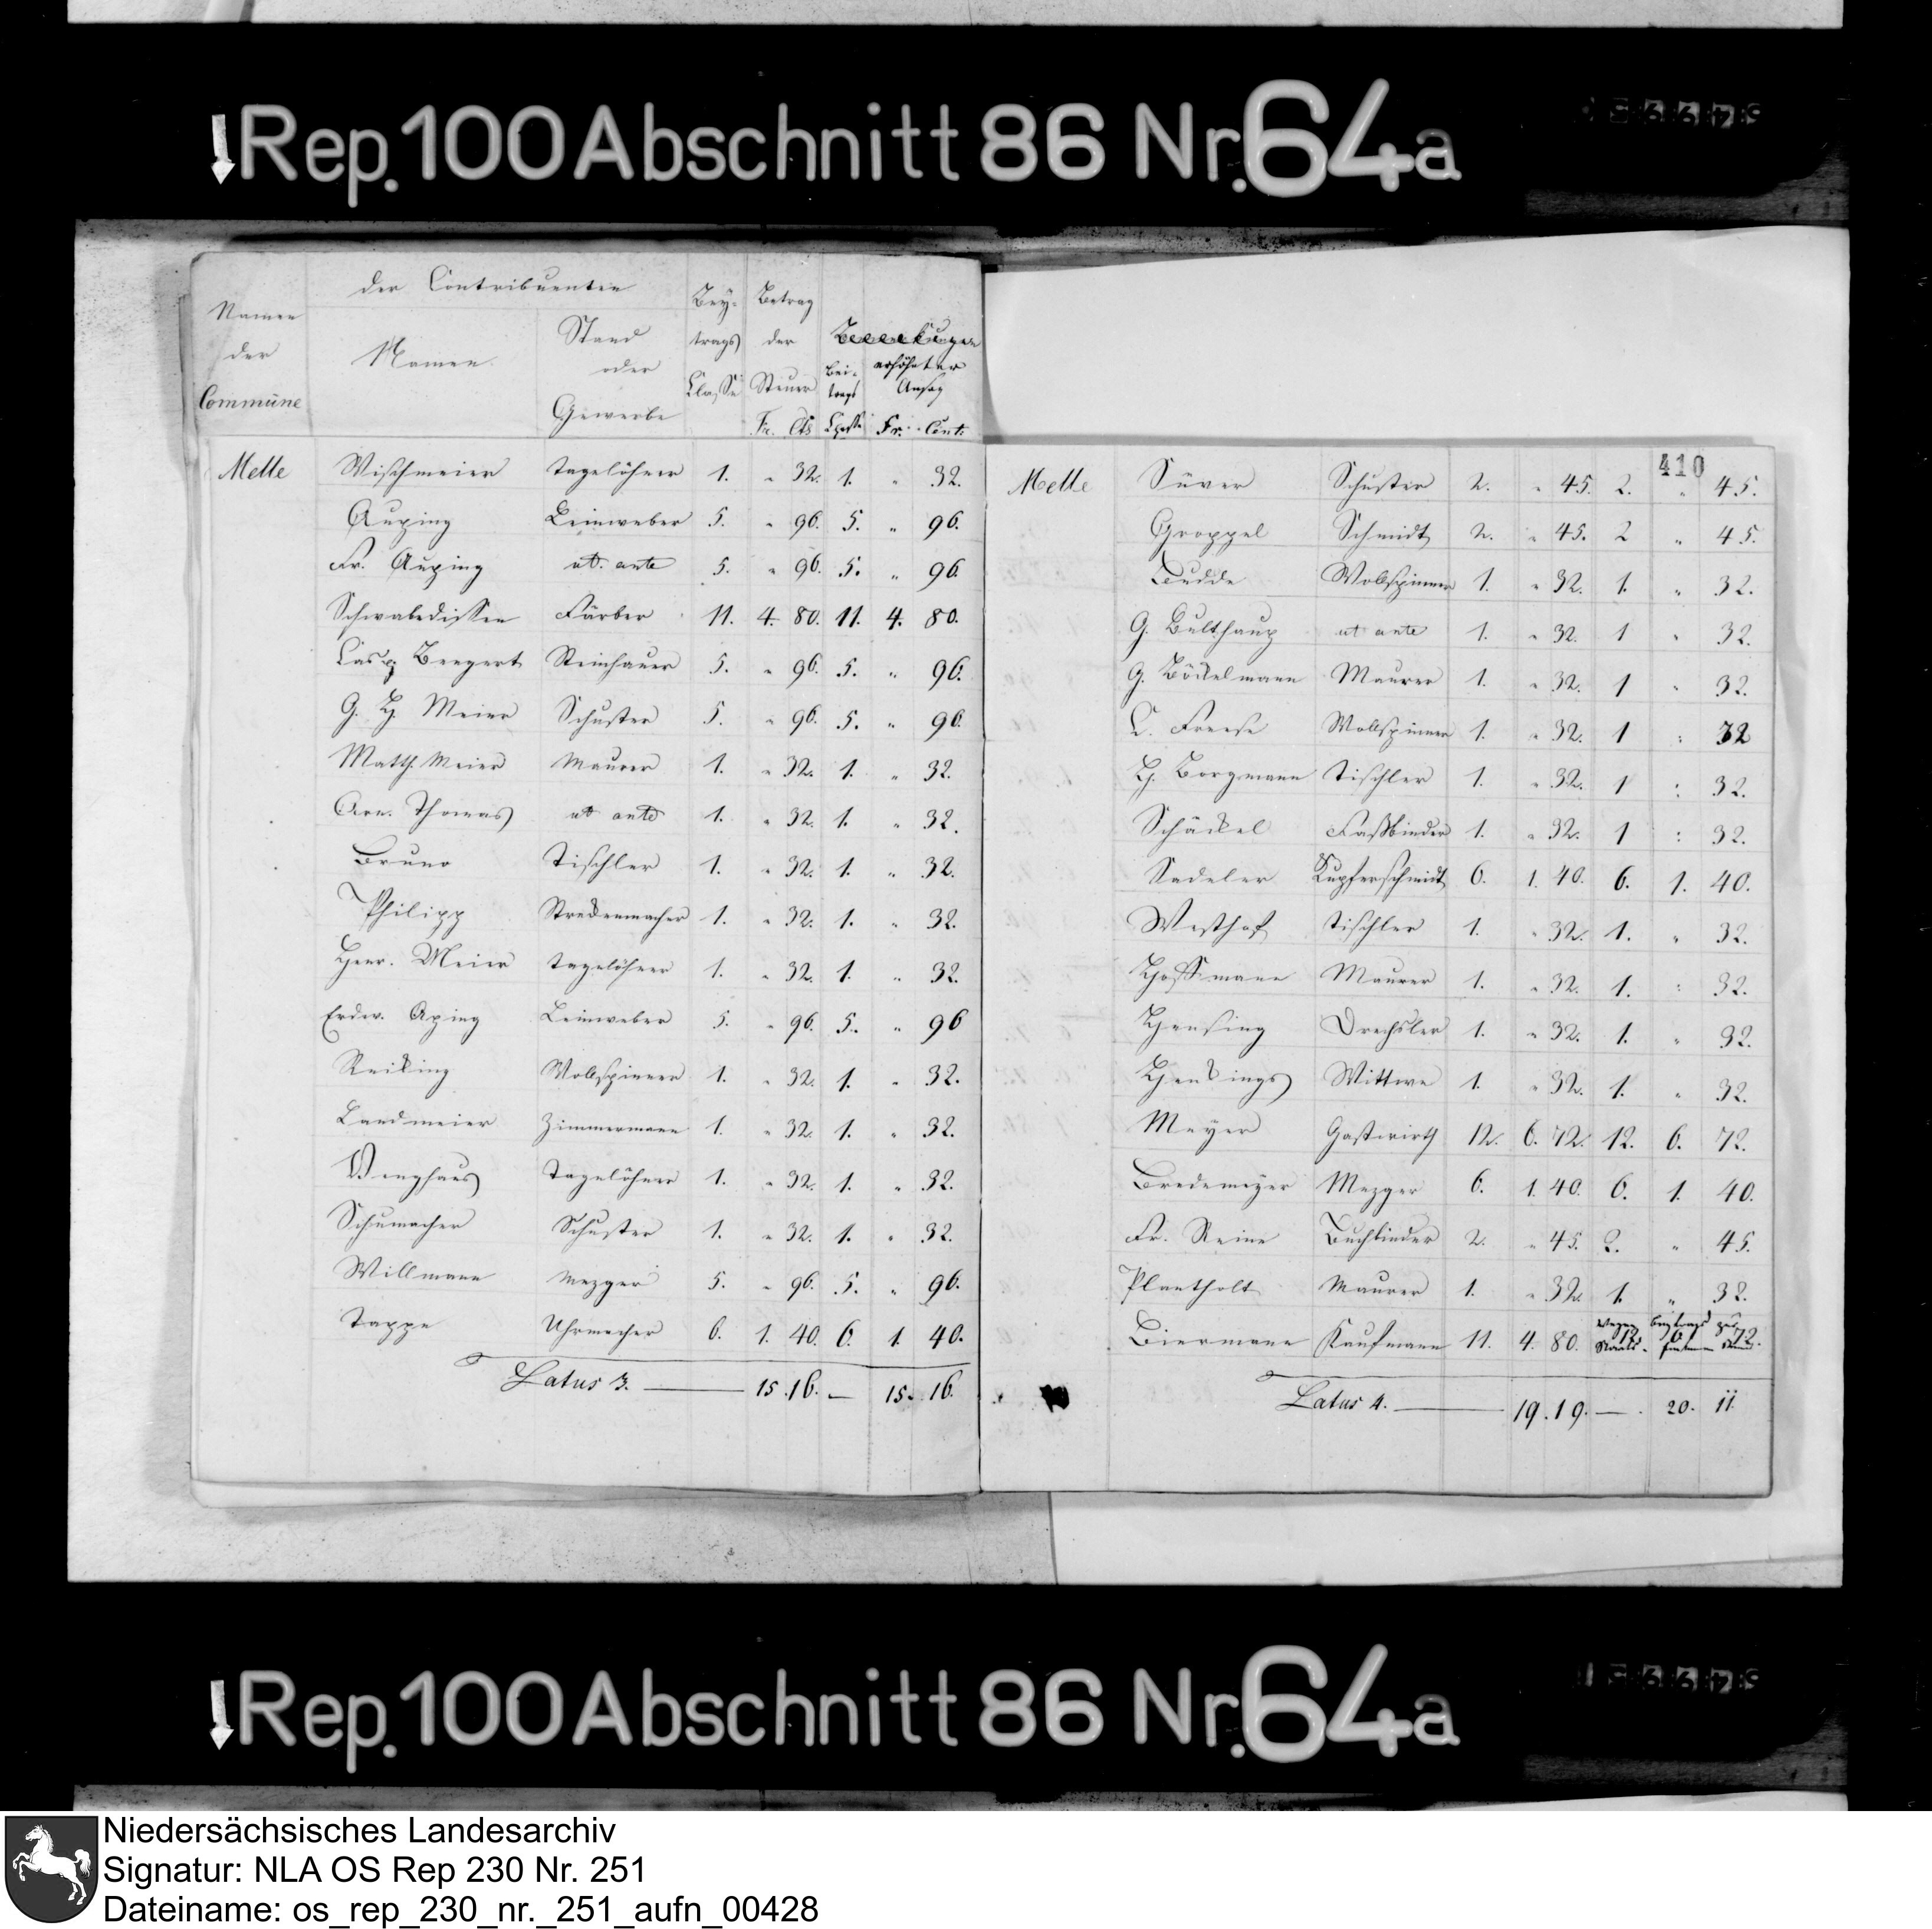 Rep. 100 Abschnitt 86 Nr. 64a
Namen der Commüne
der Contribuenten
Namen
Stand oder Gewerbe
Bey- trags Classe
Betrag der Steuer
Fr. Cts
Bei- trags Classe
erhöheter Ansaz
Fr. Cent.
Melle Wischmeier Tagelöhner 1. " 32. 1. " 32.
Auping Leinweber 5. " 96. 5. " 96.
Fr. Auping ut ante 5. " 96. 5. " 96.
Schwabedissen Färber 11. 4. 80. 11. 4. 80.
Casp. Beegert Steinhauer 5. " 96. 5. " 96.
G. H. Meier Schuster 5. " 96. 5. " 96.
Matth. Meier Maurer 1. " 32. 1. " 32.
Arn. Thomas ut ante 1. " 32. 1. " 32.
Bruno Tischler 1. " 32. 1. " 32.
Philipp 1. " 32. 1. " 32.
Henr. Meier Tagelöhner 1. " 32. 1. " 32.
Erdw. Aping Leinweber 5. " 96. 5. " 96
Reicking Wollspinner 1. " 32. 1. " 32.
Landmeier Zimmermann 1. " 32. 1. " 32.
Wenghaus Tagelöhner 1. " 32. 1. " 32.
Schumacher Schuster 1. " 32. 1. " 32.
Willmann Mezger 5. " 96. 5. " 96.
Tappe Uhrmacher 6. 1. 40. 6. 1. 40.
Latus 3. 15. 16. — 15. 16.
410
Melle Süver Schuster 2. " 45. 2. " 45.
Groppel Schmidt 2. " 45. 2 " 45.
Budde Wollspinner 1. " 32. 1. " 32.
G. Bulthaup ut ante 1. " 32. 1 " 32.
G. Böckelmann Maurer 1. " 32. 1 " 32.
C. Freese Wollspinner 1. " 32. 1 : 32
H. Borgmann Tischler 1. " 32. 1 : 32.
Schäckel Faßbinder 1. " 32. 1 : 32.
Sadeler Kupferschmidt 6. 1. 40. 6. 1. 40.
Westhof Tischler 1. " 32. 1. " 32.
Hoffmann Maurer 1. " 32. 1. : 32.
Hensing Drechsler 1. " 32. 1. " 32.
Henckings Wittwe 1. " 32. 1. " 32.
Meyer Gastwirth 12. 6. 72. 12. 6. 72.
Bredemeyer Mezger 6. 1. 40. 6. 1. 40.
Fr. Reine Buchbinder 2. " 45. 2. " 45.
Plantholt Maurer 1. " 32. 1. " 32.
Biermann Kaufmann 11. 4. 80. 12. 6. 72.
Latus 4. 19. 19. — 20. 11.
Rep. 100 Abschnitt 86 Nr. 64a
Niedersächsisches Landesarchiv
Signatur: NLA OS Rep 230 Nr. 251
Dateiname: os_rep_230_nr._251_aufn_00428